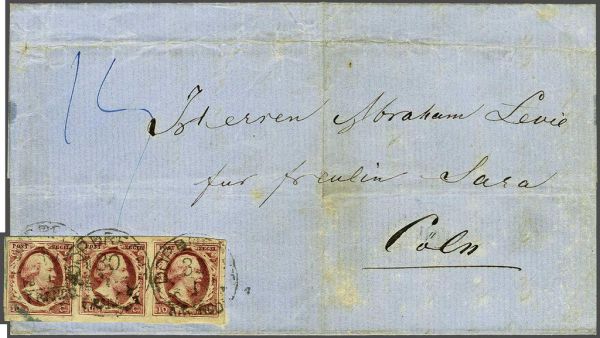 14
Herren Abraham Levie
fur freulin Sara
Cöln
POST ZEGEL POST ZEGEL POST ZEGEL
10 C. 10 C. 10